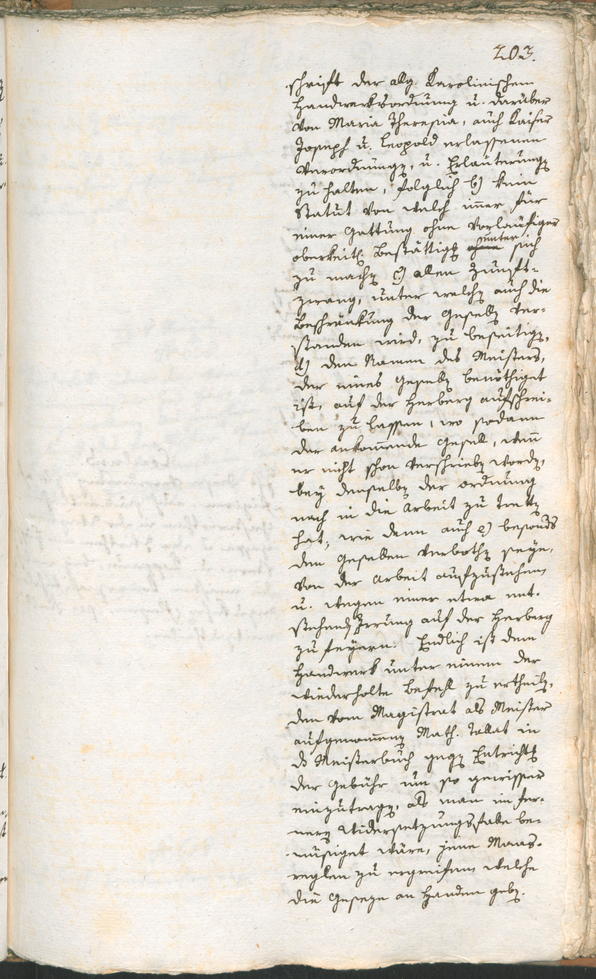 203.
schrift der allg. Karolinischen
Handwerksordnung u. darüber
von Maria Theresia, auch Kaiser
Joseph u. Leopold erlassenen
Verordnungen, u. Erläuterungen
zu halten, folglich b) kein
Statut von welch immer für
einer Gattung ohne vorläufiger
oberkeitl. Bestättigung unter sich
zu machen c) allen Zunfts-
zwang, unter welchen auch die
Beschränkung der Gesellen ver-
standen wird, zu beseitigen,
d) den Namen des Meisters,
der eines Gesellen benöthiget
ist, auf der Herberg aufschrei-
ben zu lassen, wo sodann
der ankomende Gesell, wenn
er nicht schon verschrieben worden,
bey denselben der Ordnung
nach in die Arbeit zu tretten
hat, wie dann auch e) besonders
den Gesellen verbothen seye,
von der Arbeit aufzustehen,
u. wegen einer etwa ent-
stehenden Irrung auf der Herberg
zu feyern. Endlich ist dem
Handwerk unter einem der
wiederholte Befehl zu ertheilen,
den vom Magistrat als Meister
aufgenommenen Math. Tallat in
das Meisterbuch gegen Entrichtung
der Gebühr um so gewisser
einzutragen, als man im fer-
neren Widersetzungsfalle be-
müßiget wäre, jene Maas-
reglen zu ergreifen, welche
die Geseze an Handen geben.